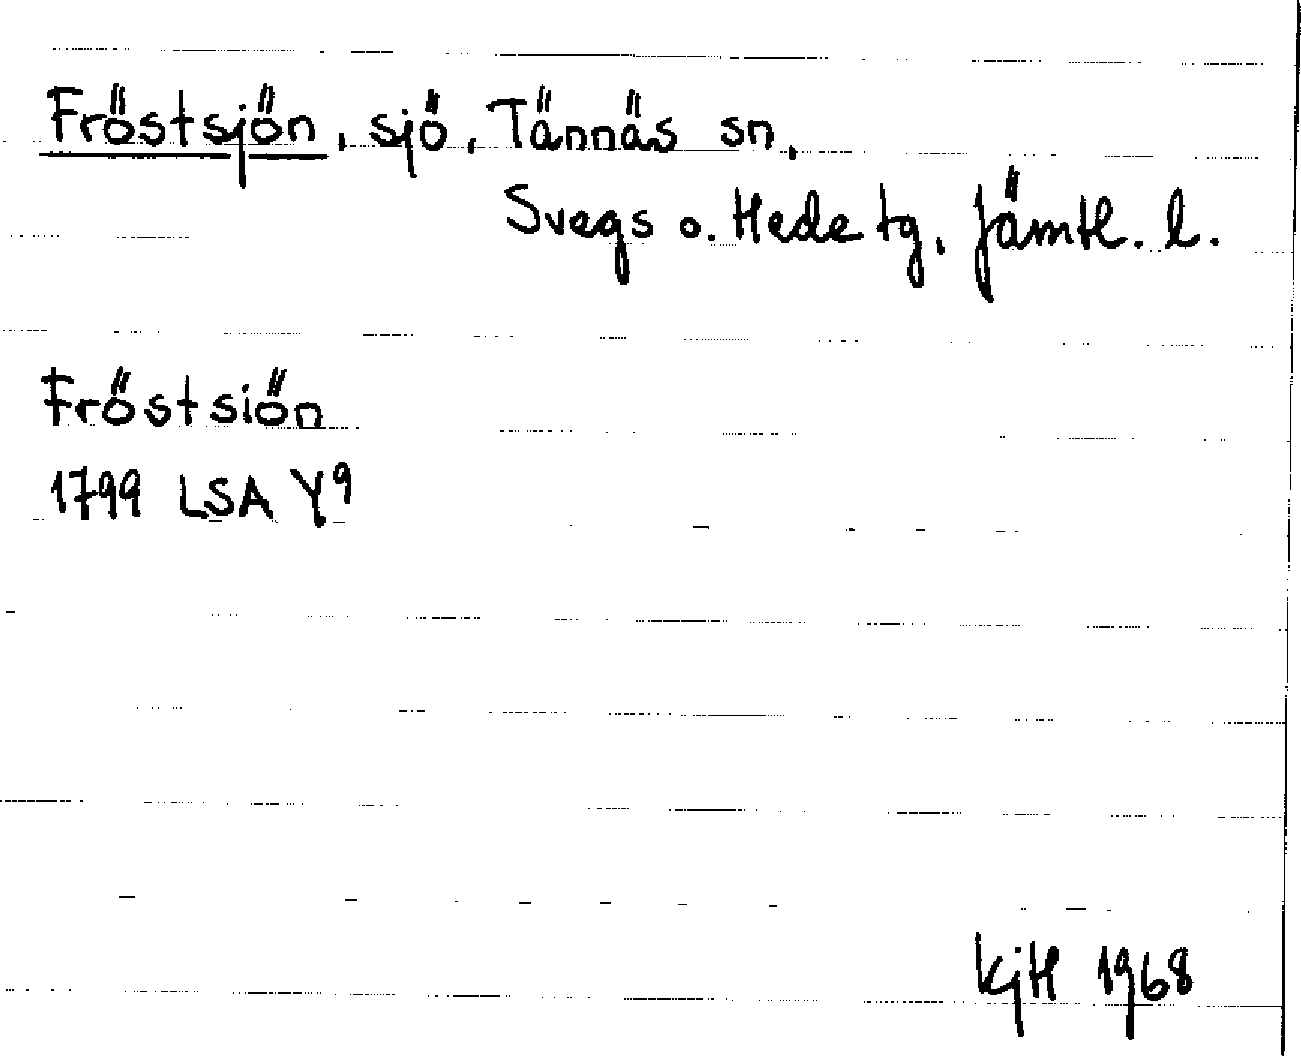 Fröstsjön, sjö, Tännäs sn,
Svegs o. Hede tg, Jämtl. l.
Fröstsiön
1799 LSA Y9
KjH 1968